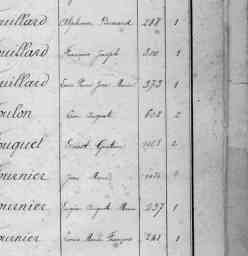 ouillard Alphonse Bernard 218 1
ouillard François Joseph 300 1
ouillard Louis Pierre Jean Marie 373 1
oulon Léon Auguste 608 2
ouquet Ernest Gustave 1108 2
ournier Jean Marie
ournier Eugène Auguste Marie 237 1
ournier Louis Marie François 241 1